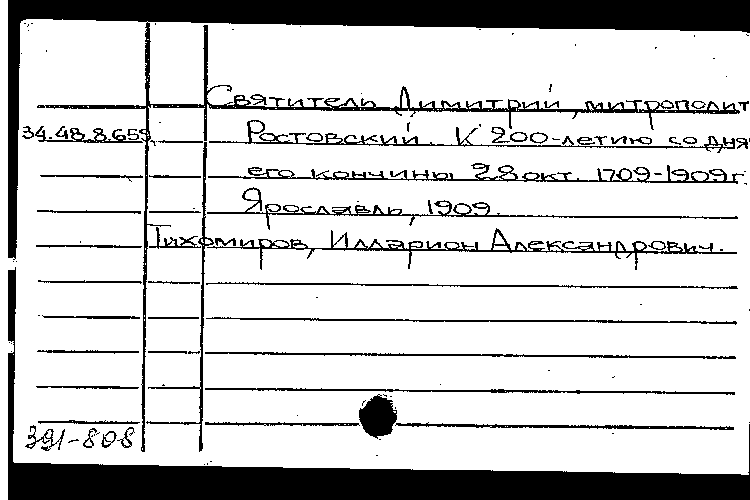 Святитель Димитрий, митрополит
34.48.8.659 Ростовский. К 200-летию со дня
его кончины 28 окт. 1709-1909 г.
Ярославль, 1909.
Тихомиров, Илларион Александрович.
391-808